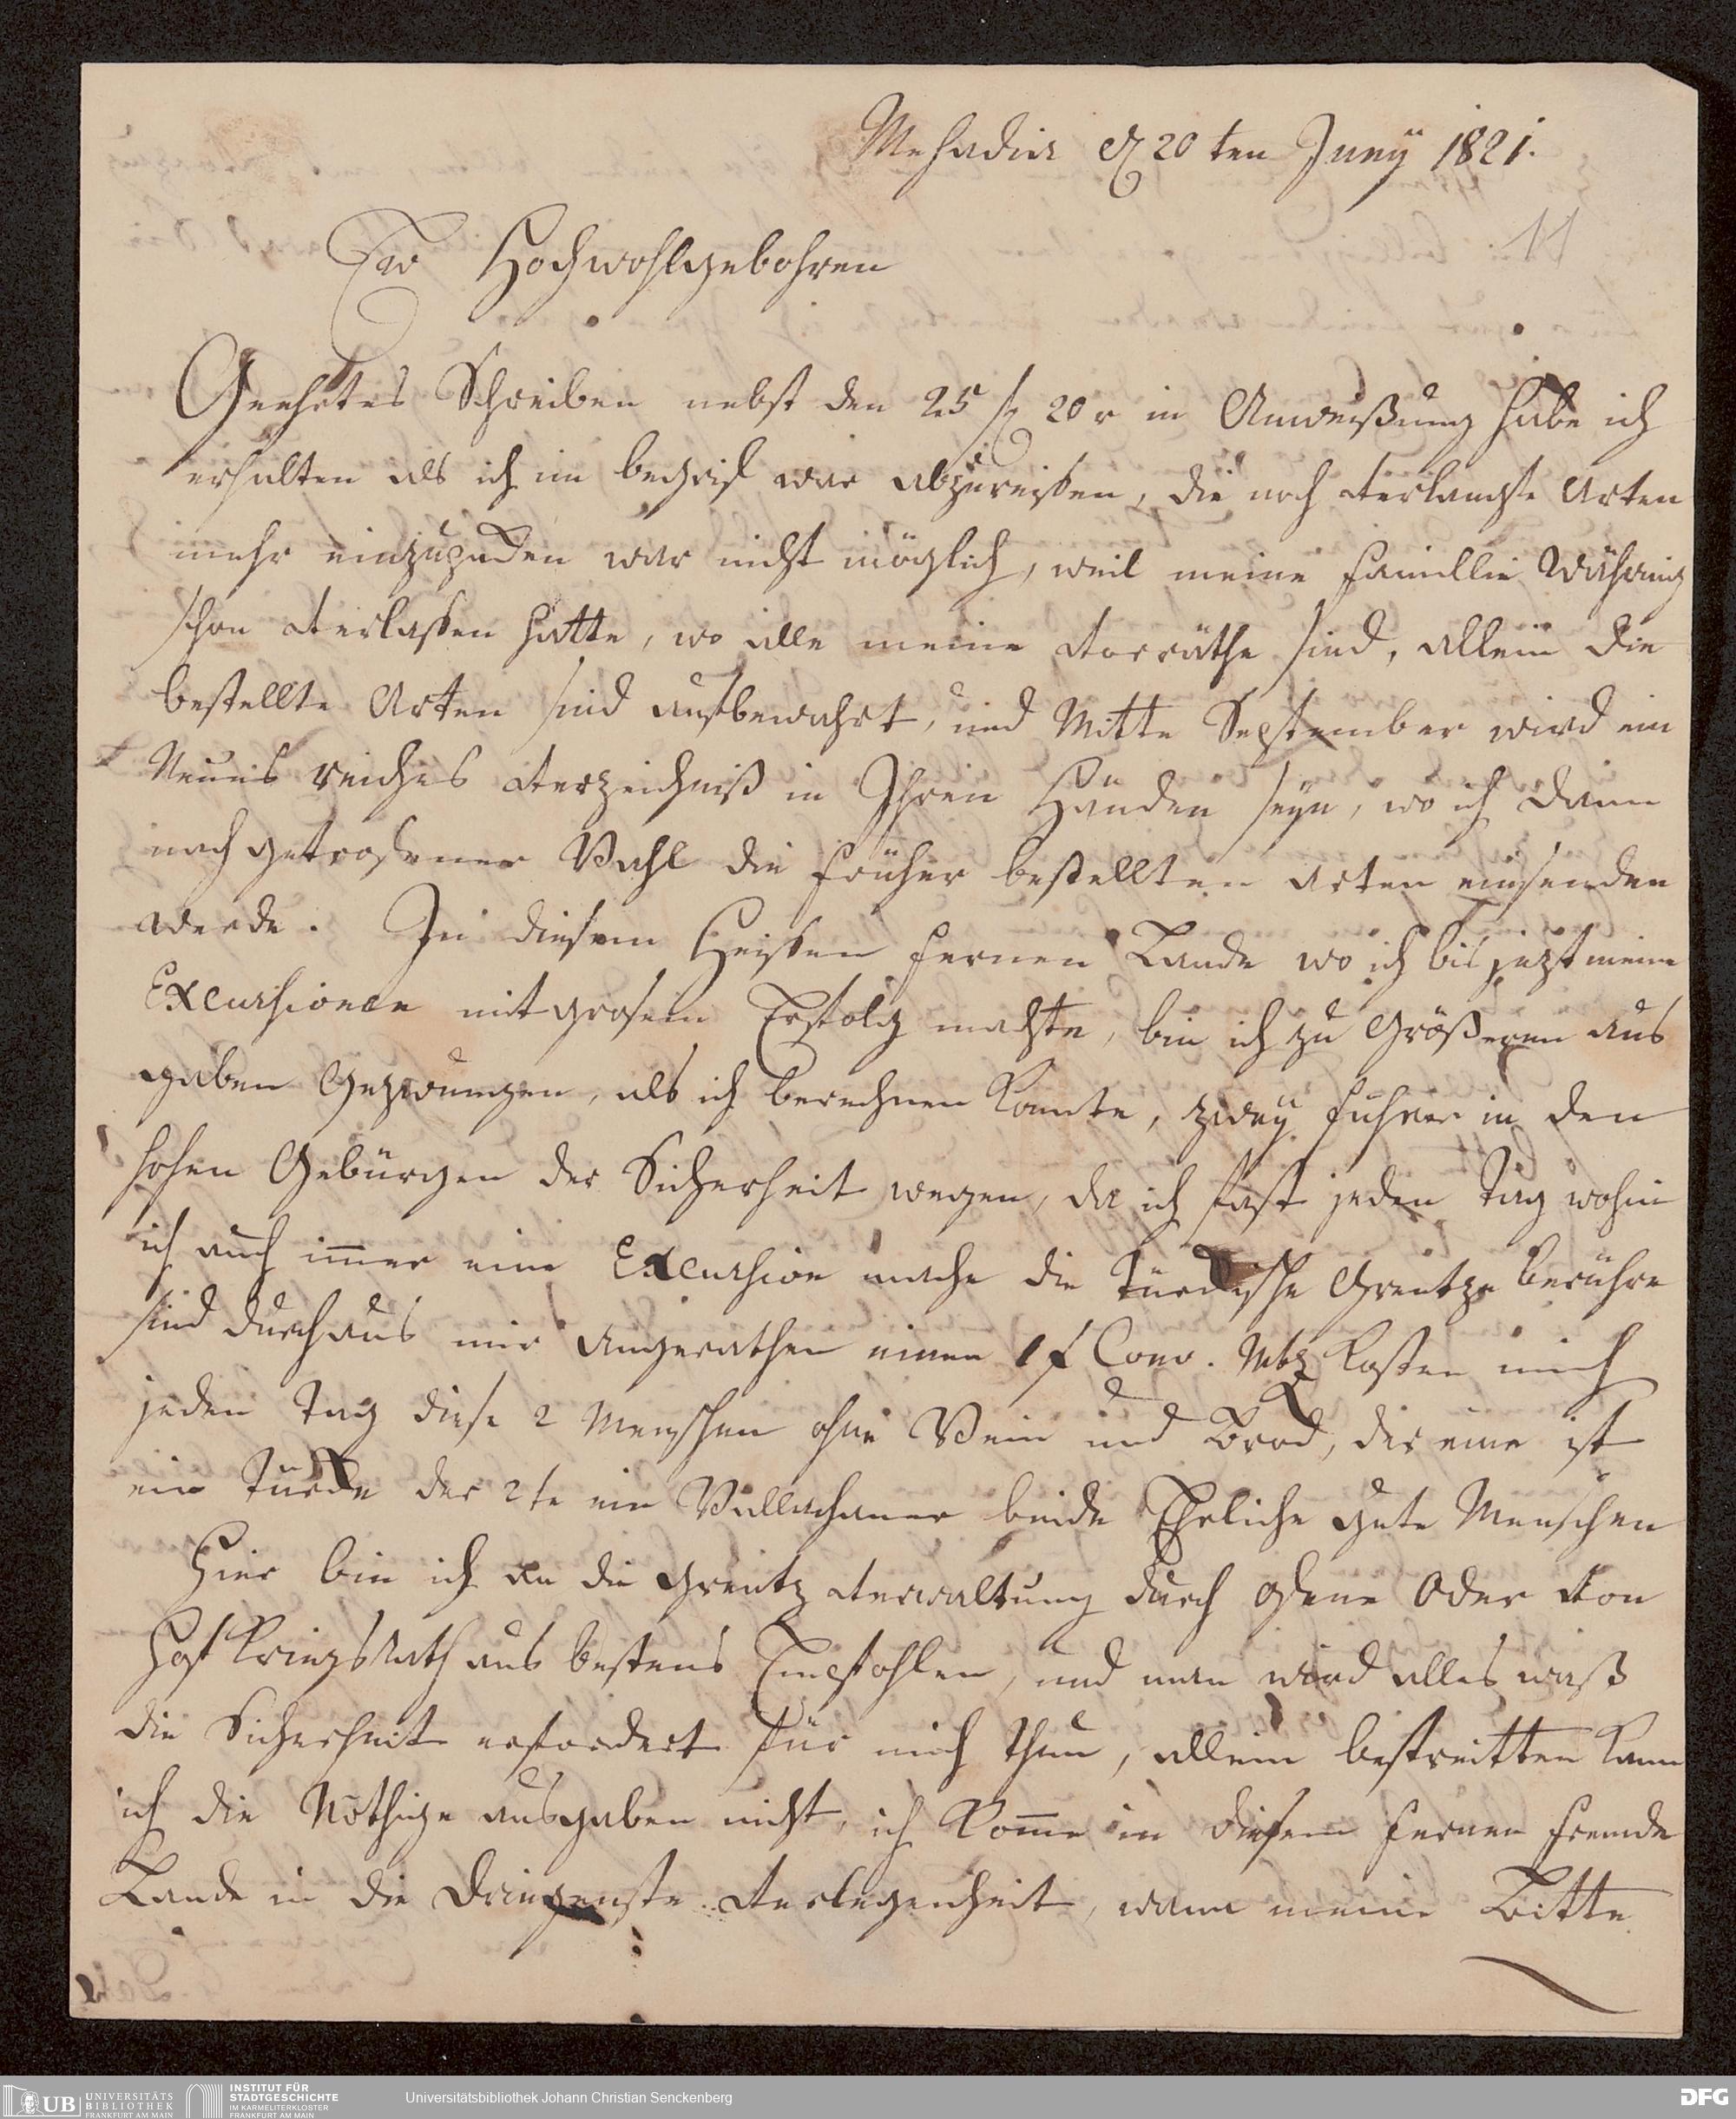 Mehadia d 20ten Juny 1821.
11
Ew Hochwohlgebohren
Geehrtes Schreiben nebst den 25 f 20 r in Anweißung habe ich
erhalten als ich im begrif war abzureißen, die noch verlangte Arten
mehr einzusenden war nicht möglich, weil meine Famillie Währing
schon verlassen hatte, wo alle meine Vorräthe sind, allein die
bestellte Arten sind aufbewahrt, und Mitte September wird ein
Neues reiches Verzeichniß in Ihren Handen seyn, wo ich dann
nach getrofener Wahl die früher bestellten Arten einsenden
werde. In diesem Heissen fernen Lande wo ich bis jezt meine
Excursionen mit grosem Erfolg machte, bin ich zu Größeren aus
gaben Gezwungen, als ich berechnen Konnte, zwey fuhrer in den
hohen Gebürgen der Sicherheit wegen, da ich fast jeden Tag wohin
ich auch im̄er eine Excursion mache die Türkische Grentze berühre
sind durchaus mir angerathen einen 1 f Conv. Mtz Kosten mich
jeden Tag diese 2 Menschen ohne Wein und Brod, der eine ist
ein Türke der 2te ein Wallachaner beide Ehrliche gute Menschen
Hier bin ich an die Grentz Verwaltung durch ofene Oder von
Hof Kriegsrath aus bestens Empfohlen, und man wird alles waß
die Sicherheit erfordert für mich thun, allein bestreitten Kann
ich die Nöthige ausgaben nicht, ich Kom̄e in diesem fernen fremde
Lande in die Dringenste Verlegenheit, wann meine Bitte
UB UNIVERSITÄTS
BIBLIOTHEK
FRANKFURT AM MAIN
INSTITUT FÜR
STADTGESCHICHTE
IM KARMELITERKLOSTER
FRANKFURT AM MAIN
Universitätsbibliothek Johann Christian Senckenberg
DFG